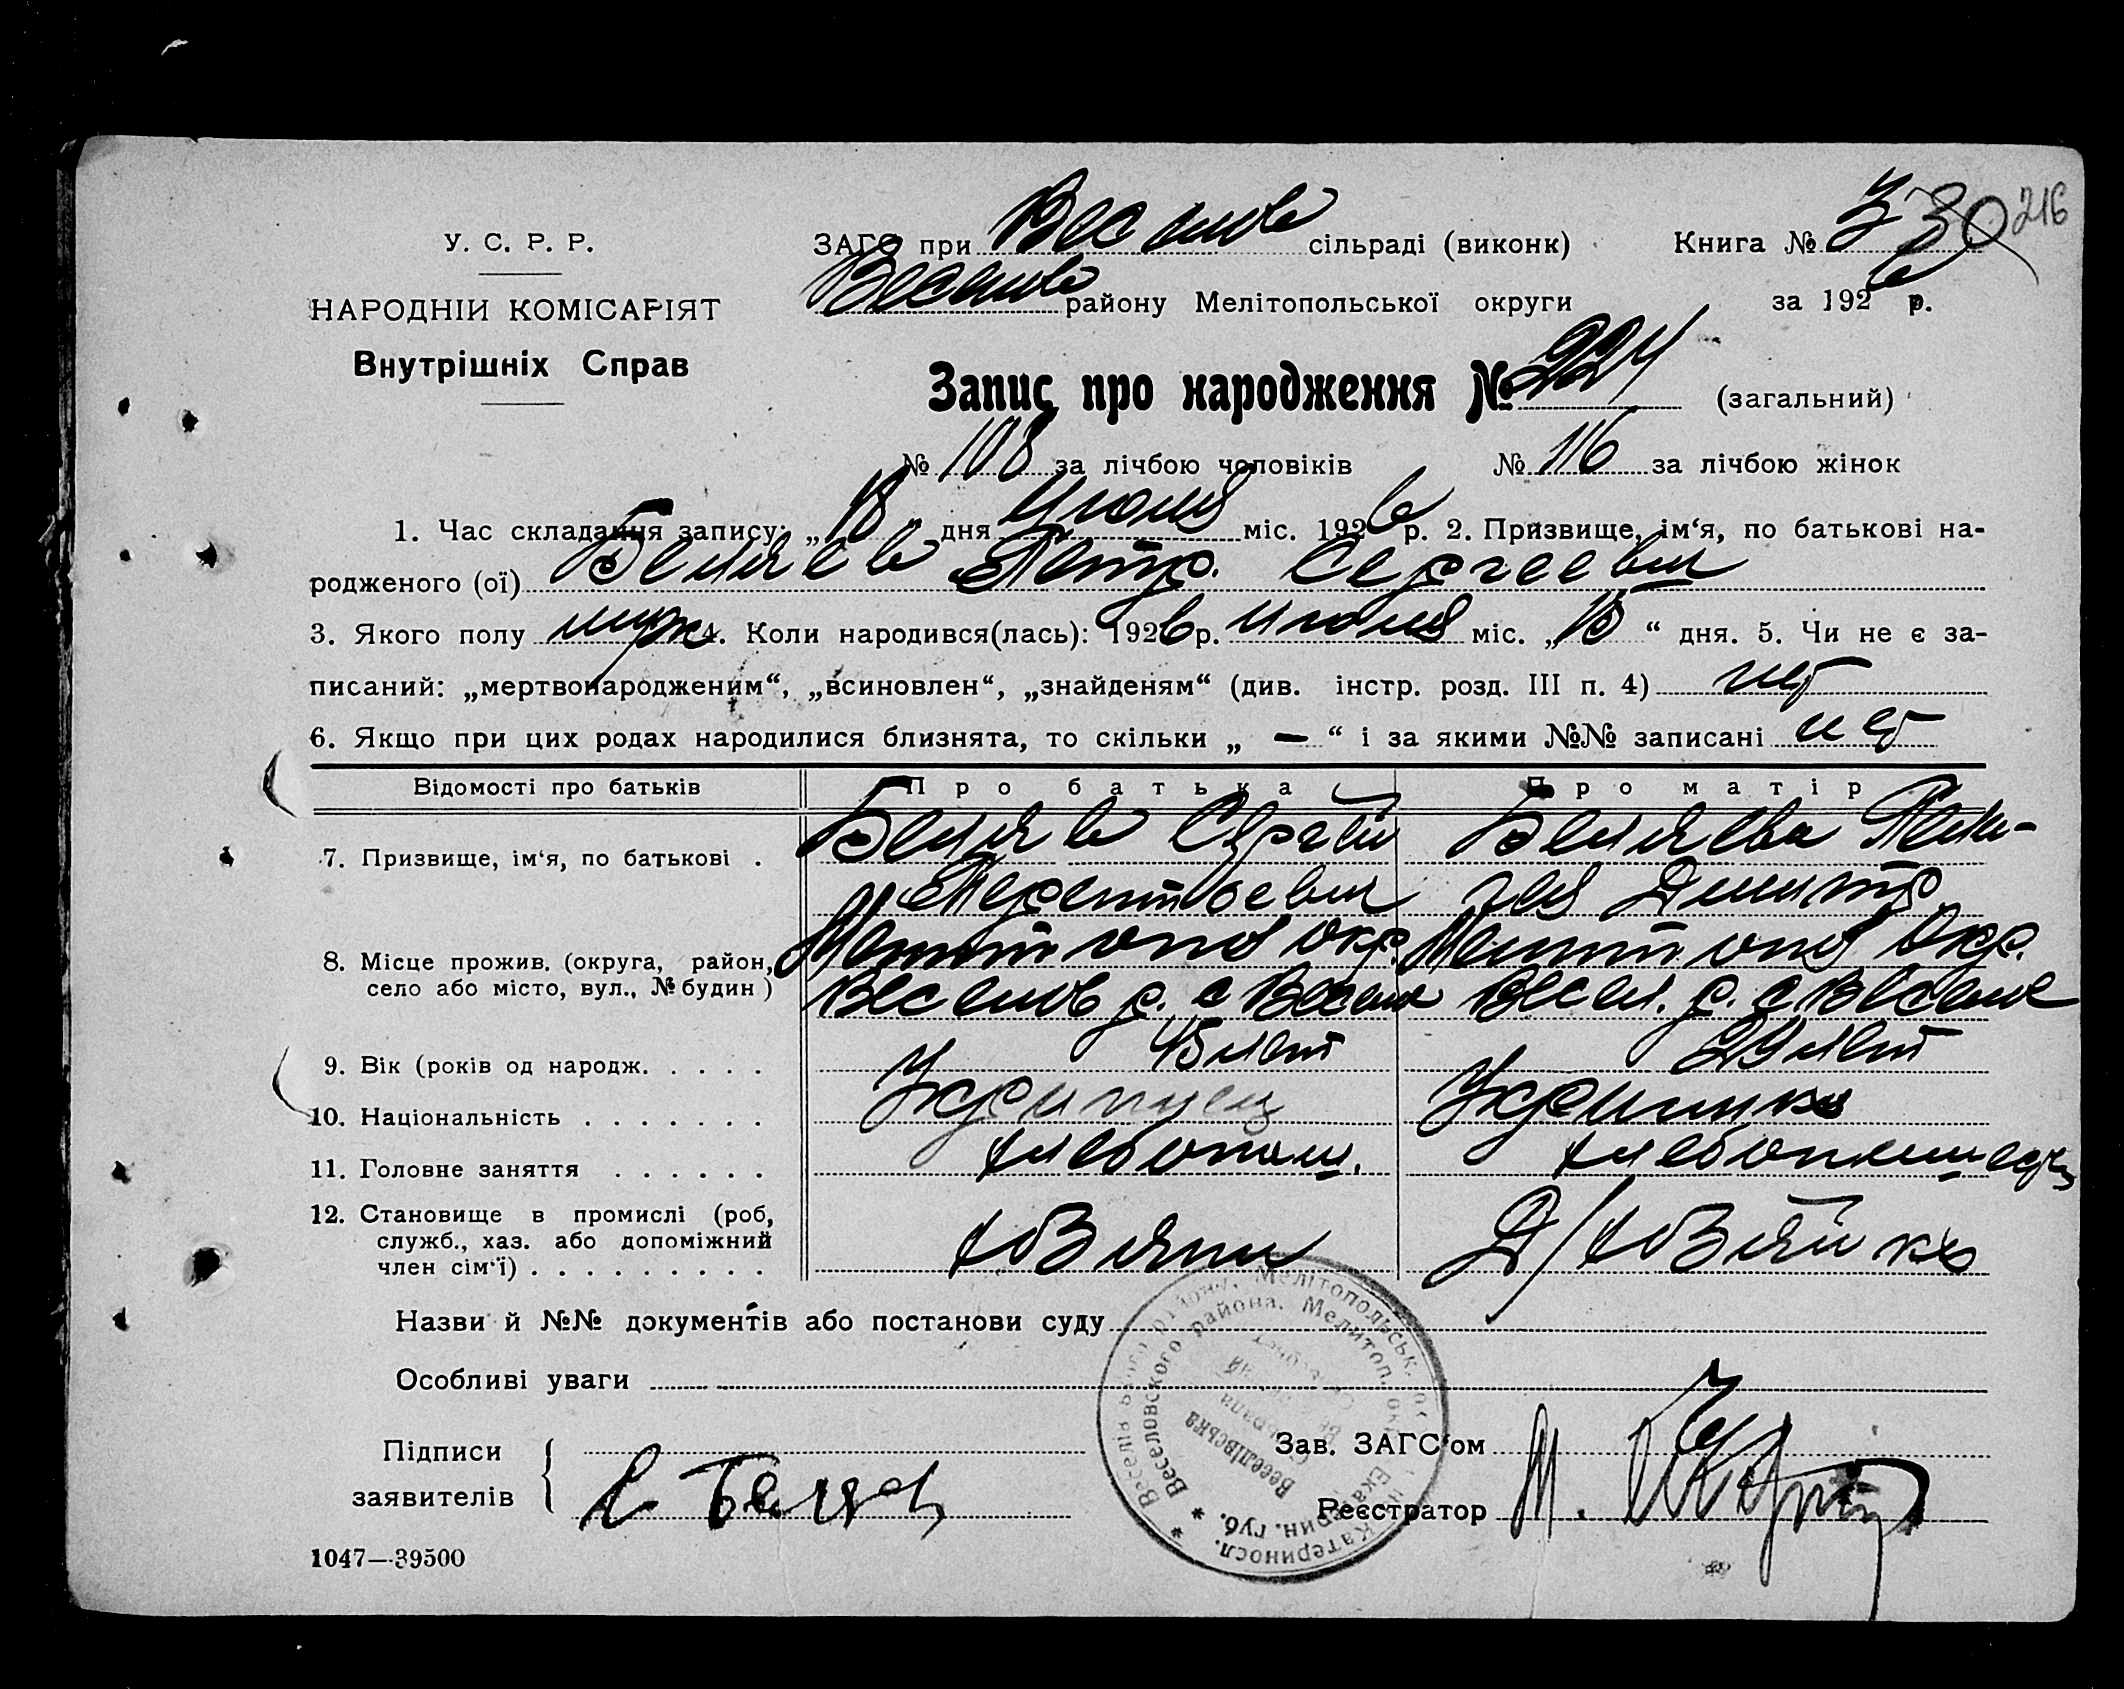 У. С. Р. Р.
НАРОДНІЙ КОМІСАРІЯТ
Внутрішніх Справ
ЗАГС при Веселов сільраді (виконк) Книга № 3 30 216
Веселов району Мелітопольської округи за 1926 р.
Запис про народження № 224 (загальний)
№ 108 за лічбою чоловіків № 116 за лічбою жінок
1. Час складання запису: „18“ дня июля міс. 1926 р. 2. Призвище, ім‘я, по батькові на-
родженого (ої) Беляев Петр. Сергеевич
3. Якого полу муж 4. Коли народився(лась): 1926 р. июля міс. „15“ дня. 5. Чи не є за-
писаний: „мертвонародженим“, „всиновлен“, „знайденям“ (див. інстр. розд. III п. 4) нет
6. Якщо при цих родах народилися близнята, то скільки „ — “ і за якими №№ записані нет
Відомості про батьків Про батька Про матір
7. Призвище, ім‘я, по батькові . Беляев Сергей Беляева Пела-
Терентьевич гея Дмитр.
8. Місце прожив. (округа, район, Мелитопол окр. Мелитопол Окр.
село або місто, вул., № будин) Веселов р. с Весел Весел. р. с Веселое
9. Вік (років од народж. . . . . 45 лет 29 лет
10. Національність . . . . . . . Украинец Украинка
11. Головне заняття . . . . . . хлебопаш. хлебопашец
12. Становище в промислі (роб,
служб., хаз. або допоміжний хозяин Д/хозяйка
член сім‘ї) . . . . . . . . .
Назви й №№ документів або постанови суду
Особливі уваги
Підписи Зав. ЗАГС‘ом
заявителів С Беляев Реєстратор М.
1047—39500
Веселівського району, Мелітопольськ. ок. Катериносл.
Веселовского района. Мелитоп. ок. Екатерин. губ.
Веселівська